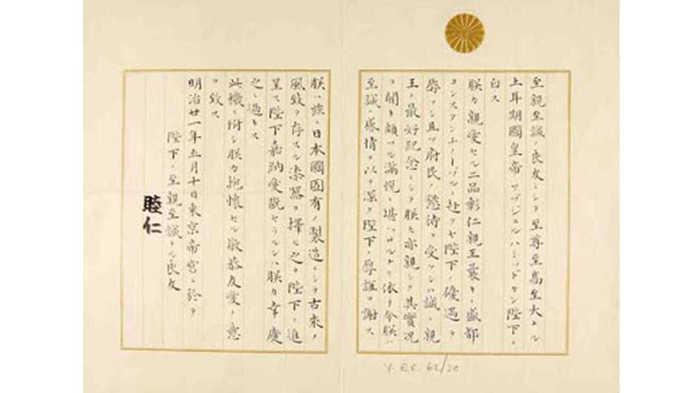 至親至誠ノ良友トシテ至尊至高至大ナル
土耳期國皇帝アブジュルハミッドカン陛下ニ
白ス
朕カ親愛セル二品彰仁親王最モ盛都
コンスタンチノープルニ赴クヤ陛下ノ優遇ヲ
辱フシ且ツ府民ノ懇待ヲ受ケシハ誠ニ親
王ノ最好紀念ニシテ朕モ亦親シク其實況
ヲ聞キ頗フル滿悦ニ堪ヘサルナリ依テ今朕ハ
至誠ノ感情ヲ以テ深ク陛下ノ厚誼ヲ謝ス
朕ハ茲ニ日本國固有ノ製造ニシテ古來ノ
風致ヲ存スル漆器ヲ擇ヒ之ヲ陛下ニ進
呈ス陛下嘉納愛翫セラレンハ朕カ幸慶
之ニ過キス
此機ニ際シ朕カ抱懷セル敬恭友愛ノ意
ヲ致ス
明治廿一年五月十日東京帝宮ニ於テ
陛下ノ至親至誠ナル良友
睦仁
Y.EE. 62/20